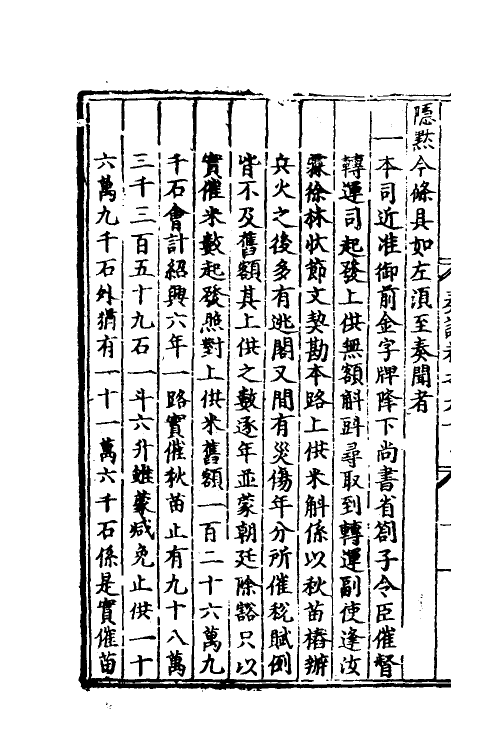 隱黙今條具如左湏至奏聞者
一本司近准御前金字牌降下尚書省劄子令臣催督
轉運司起發上供無額斛㪷尋取到轉運副使逢汝
霖徐林狀節文契勘本路上供米斛係以秋苗樁辦
兵火之後多有逃閣又間有災傷年分所催稅賦例
皆不及舊額其上供之數逐年並蒙朝廷除豁只以
實催米數起發照對上供米舊額一百二十六萬九
千石會計紹興六年一路實催秋苗止有九十八萬
三千三百五十九石一斗六升雖蒙減免止供一十
六萬九千石外猶有一十一萬六千石係是實催苗